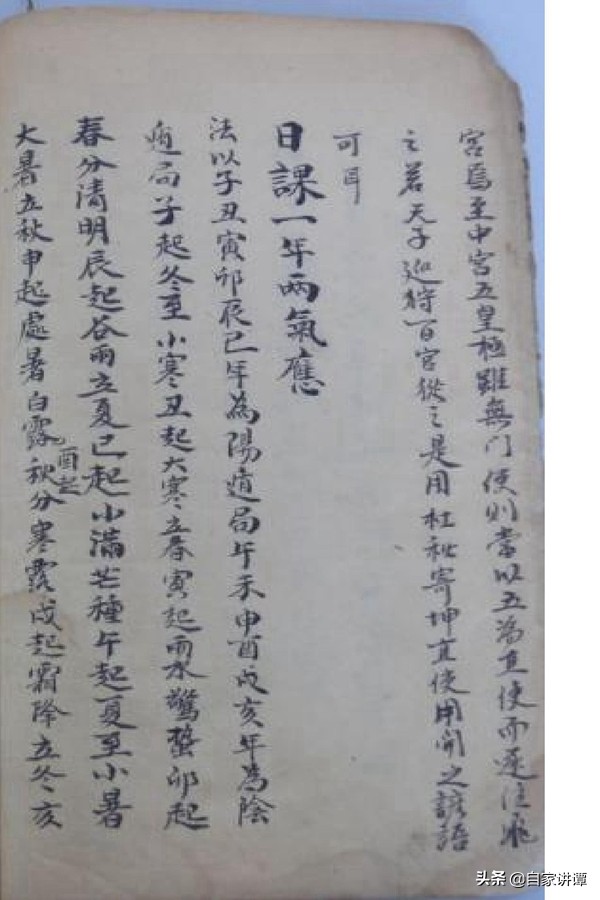 宮焉至中宮五皇極雖無门使則當以五為直使而逆往飛
之若天子巡狩百官從之是用杜秘寄坤直使用開之諺語
可耳
日課一年兩氣應
法以子丑寅卯辰巳年為陽遁局午未申酉戌亥年為陰
遁局子起冬至小寒丑起大寒立春寅起雨水驚蟄卯起
春分清明辰起谷雨立夏巳起小滿芒種午起夏至小暑
大暑立秋申起處暑白露酉起秋分寒露戌起霜降立冬亥
头条 @自家讲谭